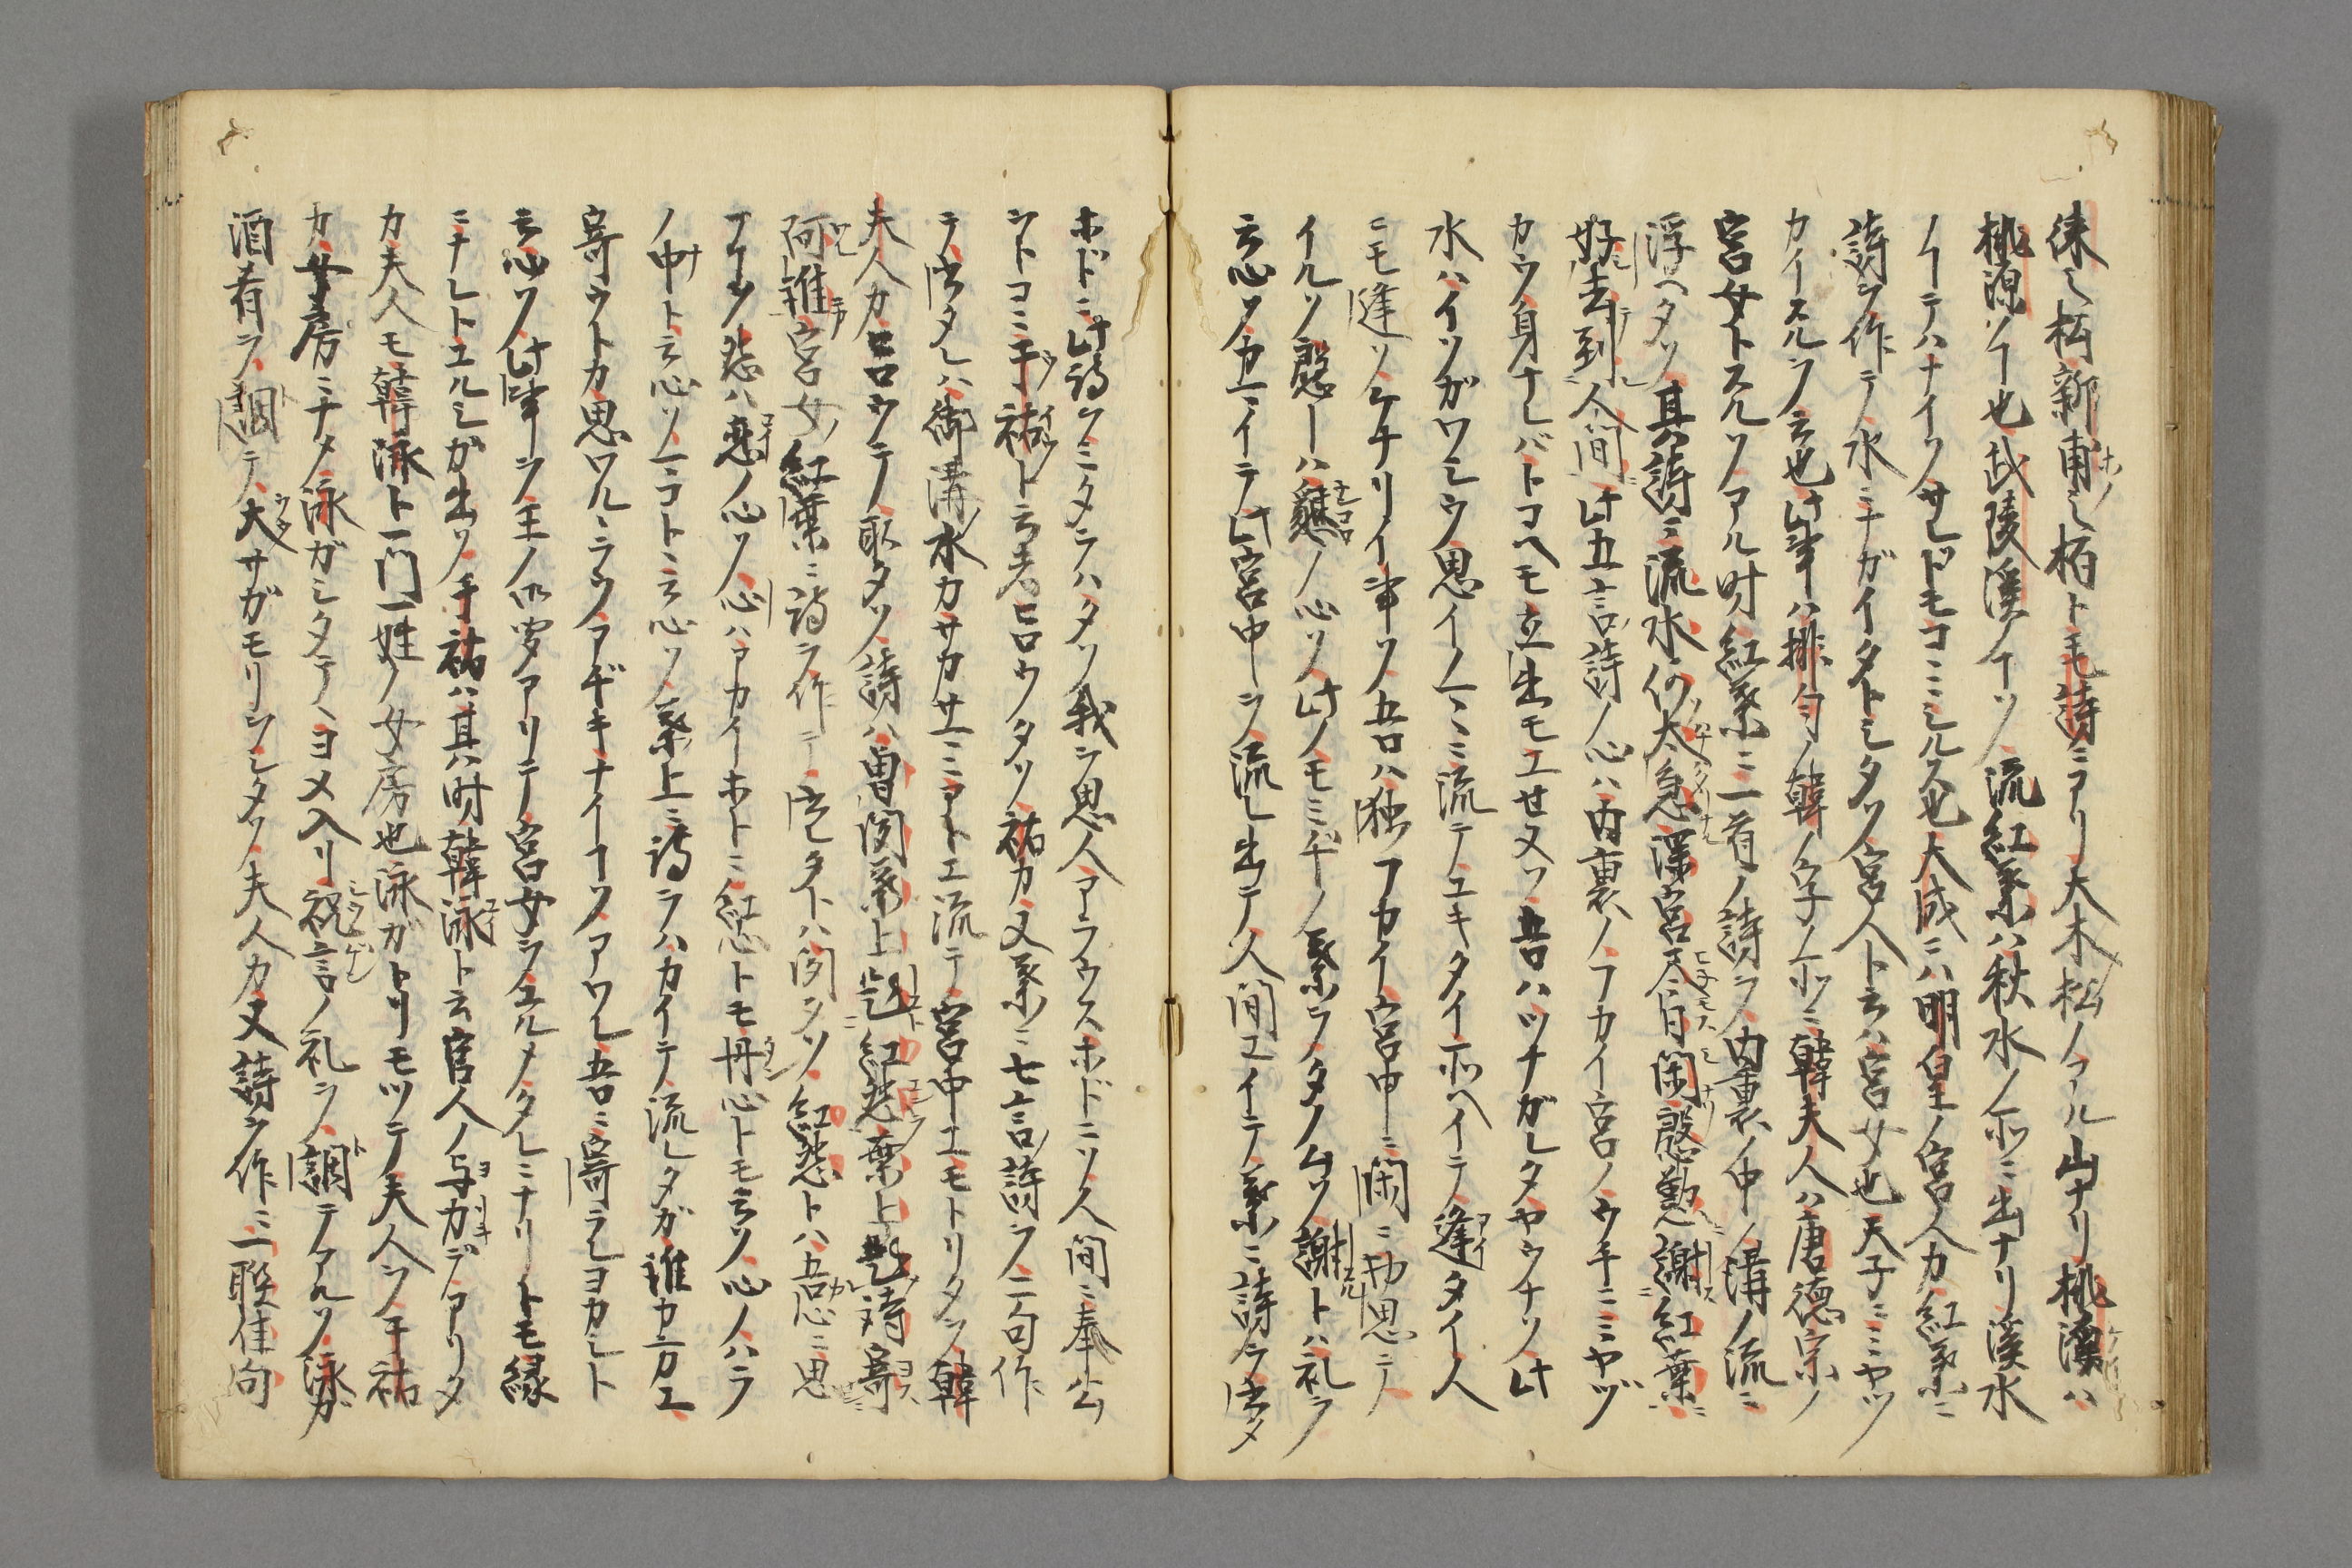 徠之松新甫之栢トモ毛詩ニアリ大木ノ松ノアル山ナリ桃溪ハ
桃源ソ也武陵溪ノイソ流紅葉ハ秋水ノ所ニ出ナリ溪水
ノイテハナイソサレドモコヽニシルス也大成ニハ明皇ノ宮人カ紅葉ニ
詩ヲ作テ水ニナガイタトシタソ宮人ト云ハ宮女也天子ニミヤヅ
カイスルヲ云也此事ハ排匀ノ韓ノ字ノ所ニ韓夫人ハ唐德宗ノ
宮女トスルソアル時紅葉ニ一首ノ詩ヲ内裏ノ中ノ溝ノ流ニ
浮ヘタソ其詩ニ流水何太急深宮尽日閑殷懃謝紅葉
好去到人間此五言詩ノ心ハ内裏ノフカイ宮ノウチニミヤヅ
カウ身ナレバトコヘモ立出モエせヌソ吾ハツナガレタヤウナソ此
水ハイソガワシウ思イノヽニ流テユキタイ所ヘイテ逢タイ人
ニモ逢ソケナリイ事ソ吾ハ独フカイ宮中ニ閑ニ物思テ
イルソ慇ーハ懇ノ心ソ此ノモミヂノ葉ヲタノムソ謝トハ礼ヲ
云心タカニイテ此宮中ヲ流レ出テ人間エイテ葉ニ詩ヲ書タ
ホドニ此詩ヲミタラハタソ我ヲ思人アラウスホドニソ人間ニ奉公
シトコニ于祐ト云者ヒロウタソ祐カ又葉ニ七言詩ヲ二句作
テ書タレハ御溝水カサカサニミアトエ流テ宮中エモトリタヲ韓
夫人カヒロウテ取タソ詩ハ曽聞葉上題紅怨葉上題詩寄
阿誰宮女ノ紅葉ニ詩ヲ作テ書タトハ聞タソ紅怨トハ吾思ニ思
フイタ怨ハ恋ノ心ソ心ハアカイホトニ紅心トモ丹心トモ云ソ心ノハラ
ノ中ト云心ソーコトミ云心ソ葉上ニ詩ヲハカイテ流レタガ誰カ方エ
寄ウトカ思ワルヽラウアヂキナイ事ソアワレ吾ニ寄ラレヨカシト
云心ソ此事ヲ王ノ聞アリテ宮女ヲユルメタレニナリトモ縁
ニナレトユルシガ出ソ于祐ハ其時韓泳ト云官人ノ与力デアリタ
カ夫人モ韓泳ト一門一姓ノ女房也泳ガトリモツテ夫人ヲ于祐
カ女房ニナタ泳ガシタテヽヨメ入リ祝言ノ礼ヲ調テアルソ泳ガ
酒肴ヲ調テ大サガモリヲシタソ夫人カ又詩ヲ作ニ一聯佳句